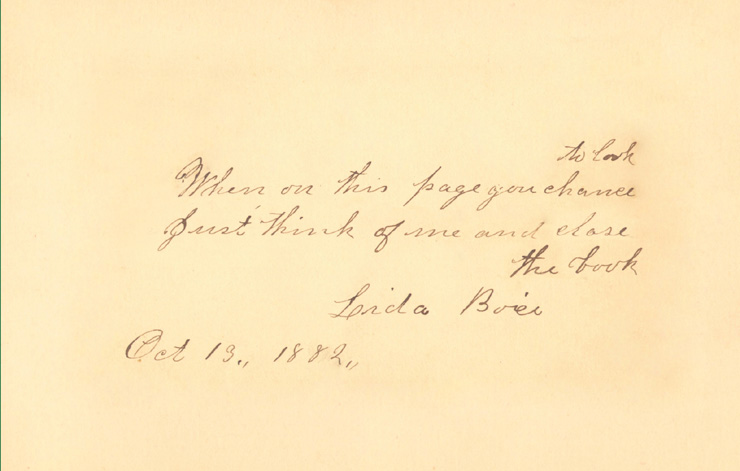 to look
When on this page you chance
Just think of me and close
the book
Lida
Oct 13,, 1882,,